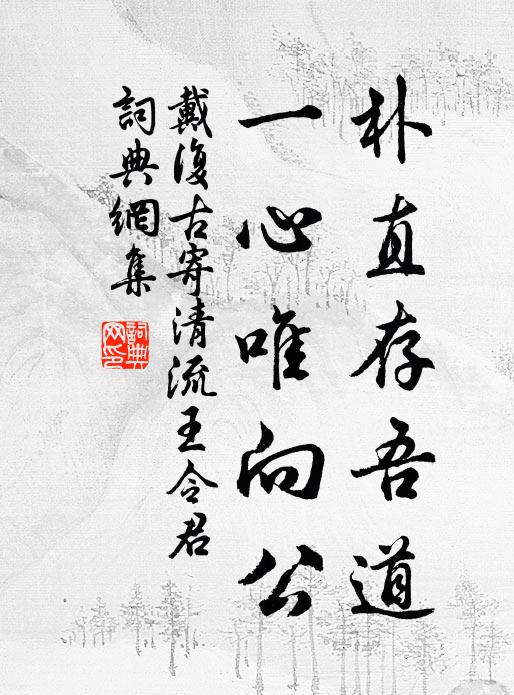 朴直存吾道
一心唯向公
戴復古寄清流王令君
詞典網集
詞典
网印